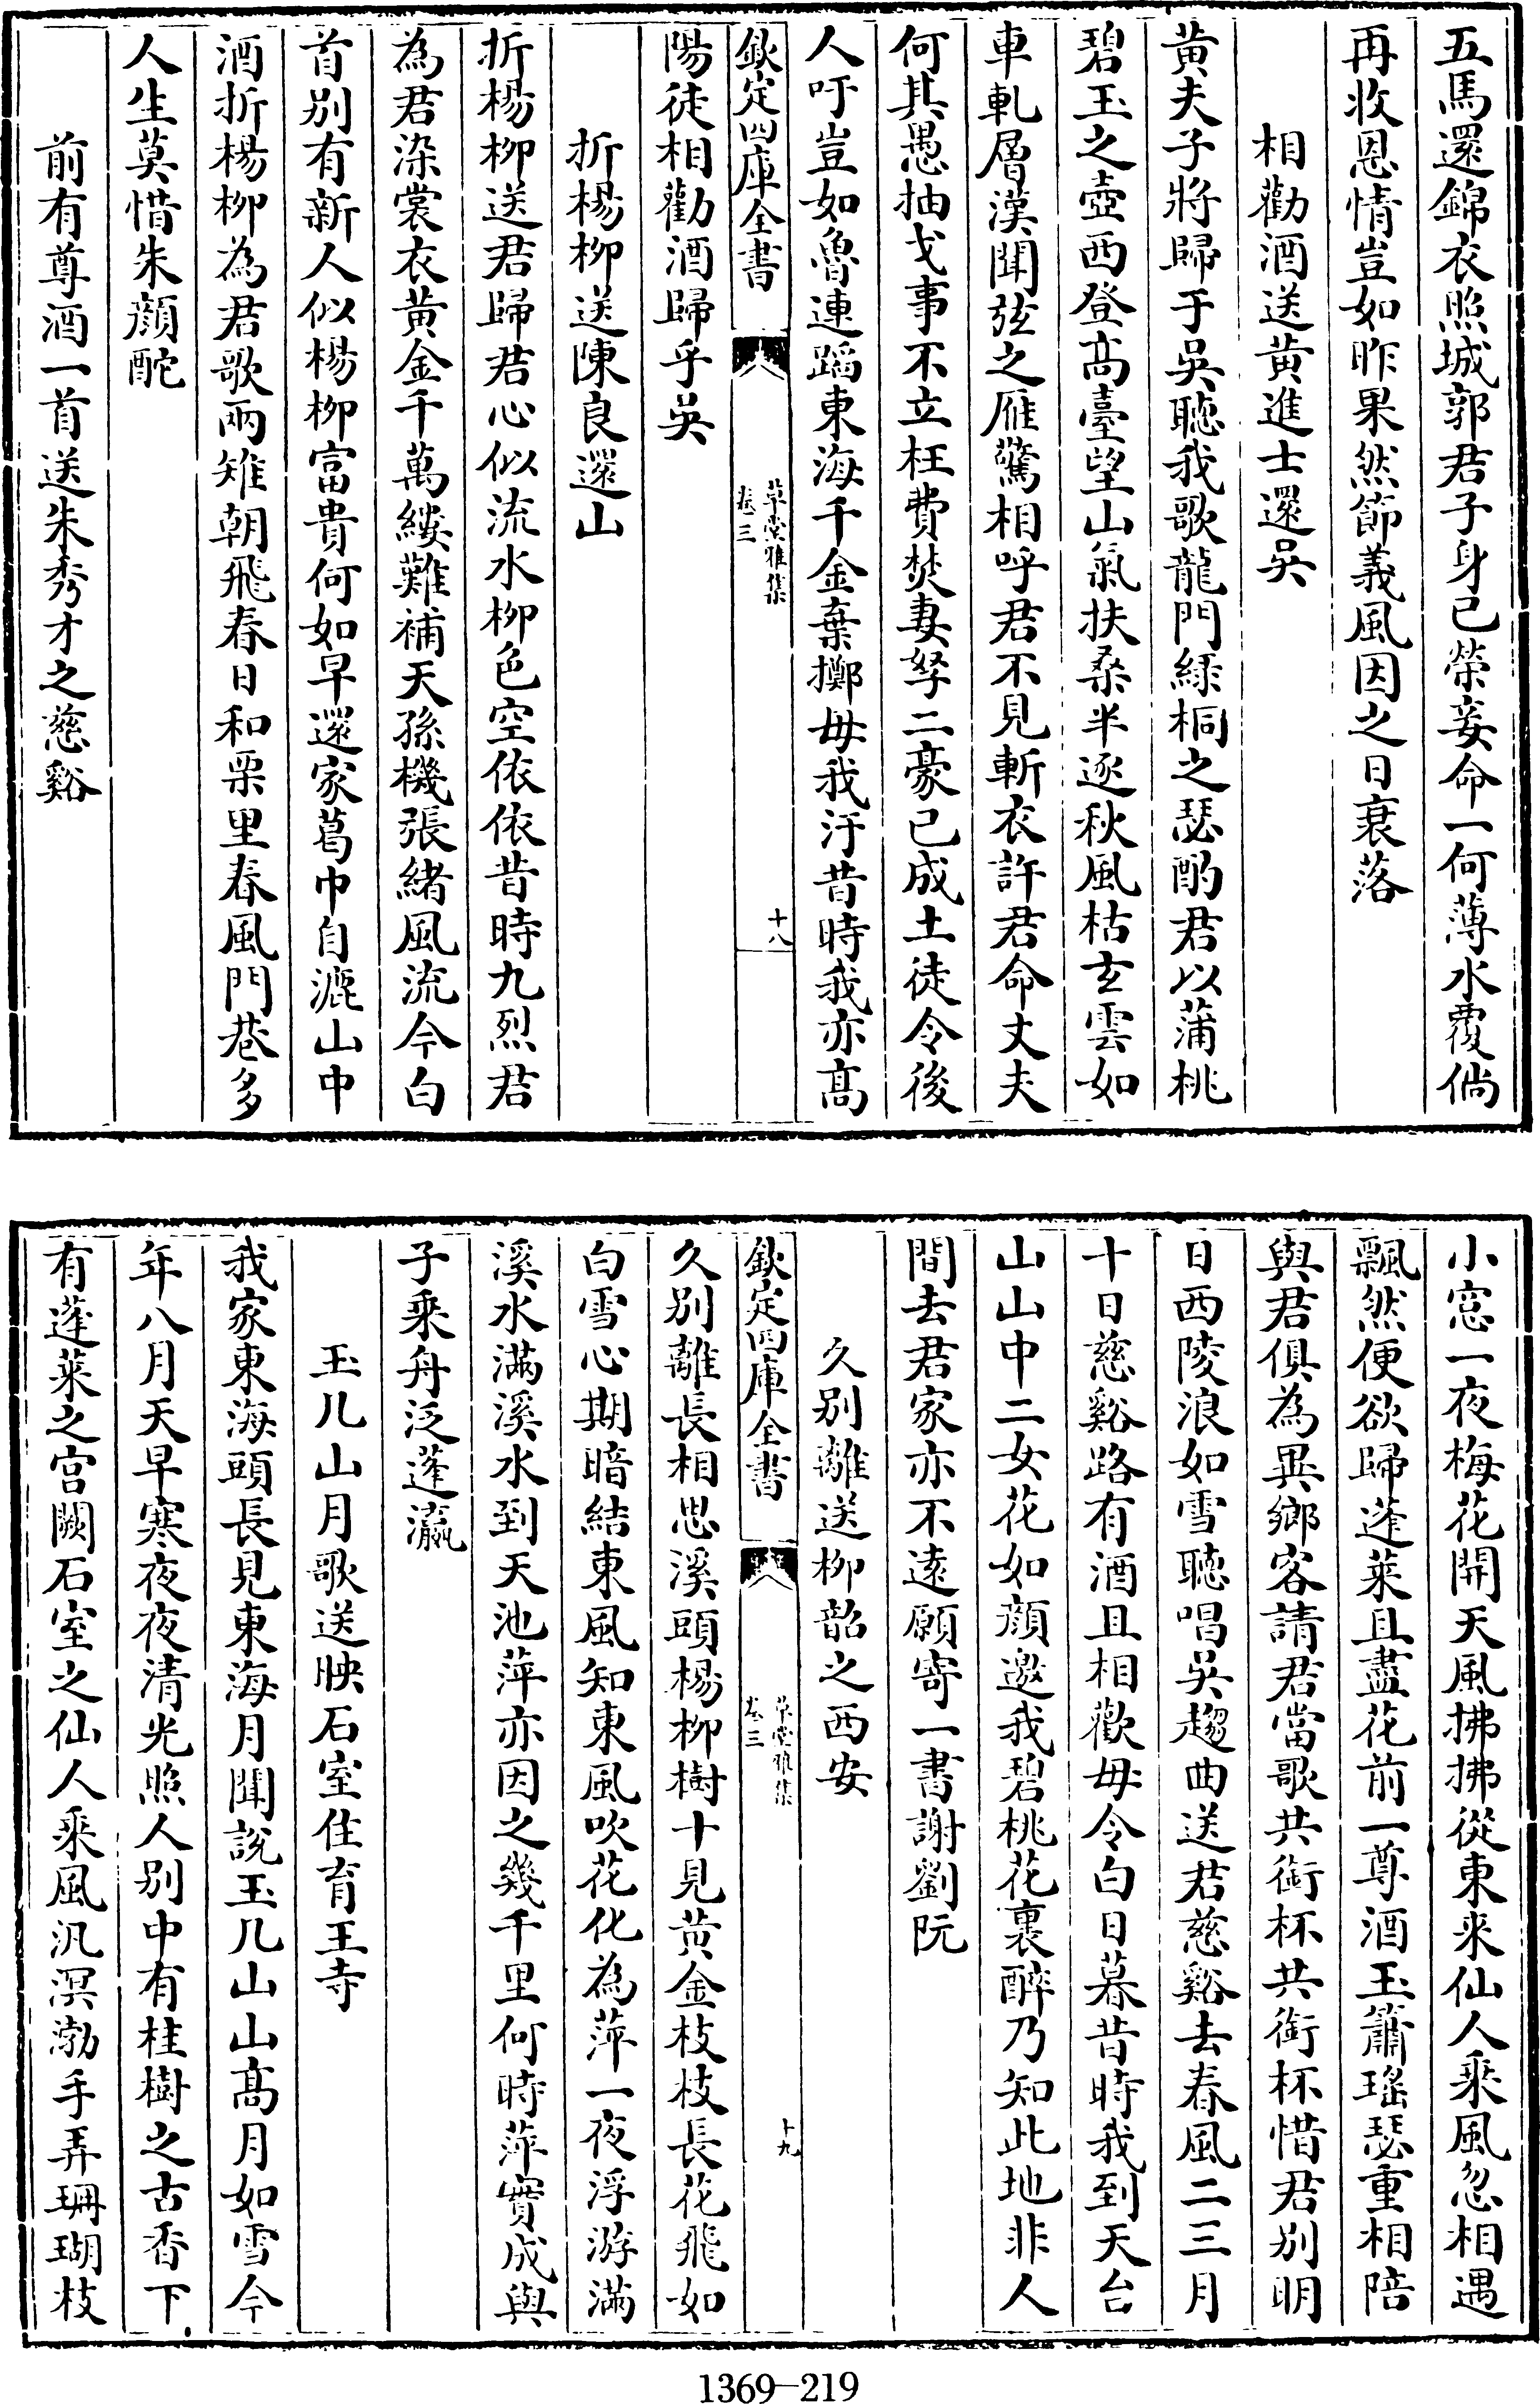 五馬還錦衣照城郭君子身已榮妾命一何薄水覆倘
再收恩情豈如昨果然節義風因之日衰落
相勸酒送黄進士還吳
黄夫子將歸于吳聽我歌龍門綠桐之瑟酌君以蒲桃
碧玉之壺西登髙臺望山氣扶桑半逐秋風枯玄雲如
車軋層漢聞弦之雁驚相呼君不見斬衣許君命丈夫
何其愚抽戈事不立枉費焚妻孥二豪已成土徒令後
人吁豈如魯連蹈東海千金棄擲毋我汙昔時我亦髙
欽定四庫全書
草堂雅集
卷三
十八
陽徒相勸酒歸乎吳
折楊柳送陳良還山
折楊柳送君歸君心似流水柳色空依依昔時九烈君
為君染裳衣黄金千萬縷難補天孫機張緒風流今白
首别有新人似楊柳富貴何如早還家葛巾自漉山中
酒折楊柳為君歌兩雉朝飛春日和栗里春風門巷多
人生莫惜朱顔酡
前有尊酒一首送朱秀才之慈谿
小窓一夜梅花開天風拂拂從東来仙人乘風忽相遇
飄然便欲歸蓬萊且盡花前一尊酒玉簫瑤瑟重相陪
與君俱為異鄉客請君當歌共銜杯共銜杯惜君别明
日西陵浪如雪聽唱吳趨曲送君慈谿去春風二三月
十日慈谿路有酒且相歡毋令白日暮昔時我到天台
山山中二女花如顔邀我碧桃花裏醉乃知此地非人
間去君家亦不逺願寄一書謝劉阮
久别離送柳韶之西安
欽定四庫全書
草堂雅集
卷三
十九
久别離長相思溪頭楊柳樹十見黄金枝枝長花飛如
白雪心期暗結東風知東風吹花化為萍一夜浮游滿
溪水滿溪水到天池萍亦因之幾千里何時萍實成與
子乘舟泛蓬瀛
玉几山月歌送映石室住育王寺
我家東海頭長見東海月聞説玉几山山髙月如雪今
年八月天早寒夜夜清光照人别中有桂樹之古香下
有蓬萊之宫闕石室之仙人乘風汎溟渤手弄珊瑚枝
1369—219